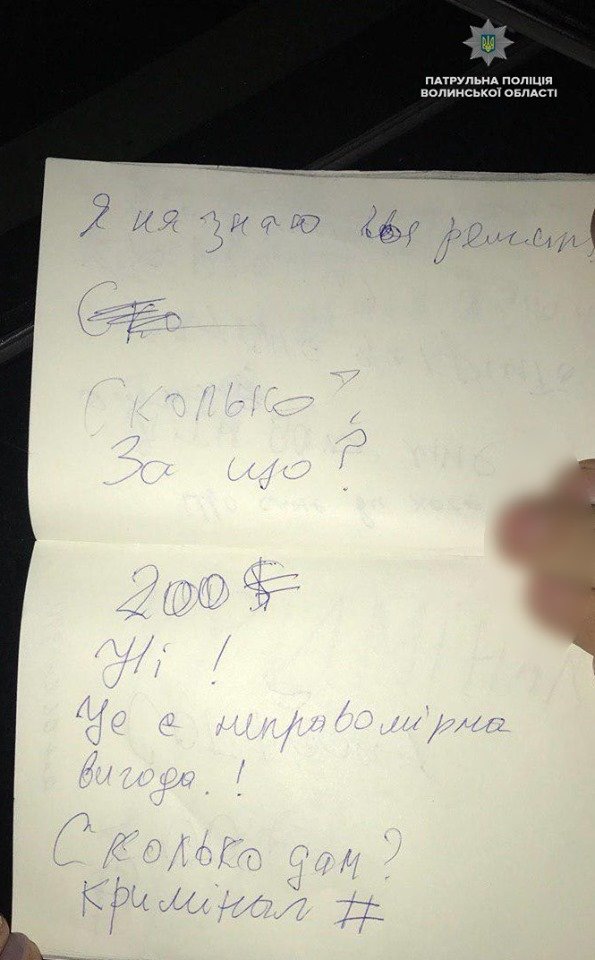 ПАТРУЛЬНА ПОЛІЦІЯ
ВОЛИНСЬКОЇ ОБЛАСТІ
Я ня знаю
Ско
Сколько?
За що?
200$
Ні!
Це є неправомірна
вигода.!
Сколько дам?
Кримінал #